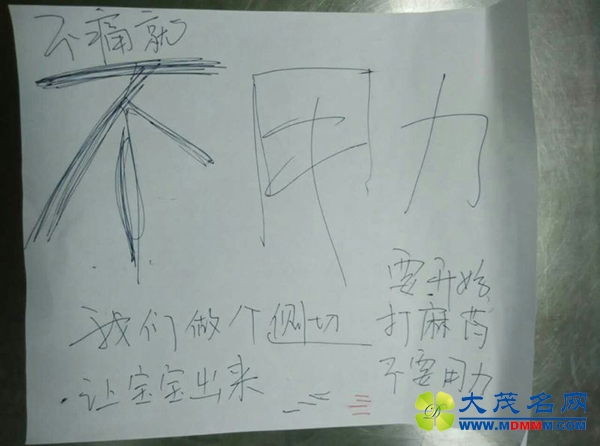 不痛就
不用力
我们做个侧切
让宝宝出来
要开始
打麻药
不要用力
大茂名网
WWW.MDMMM.COM